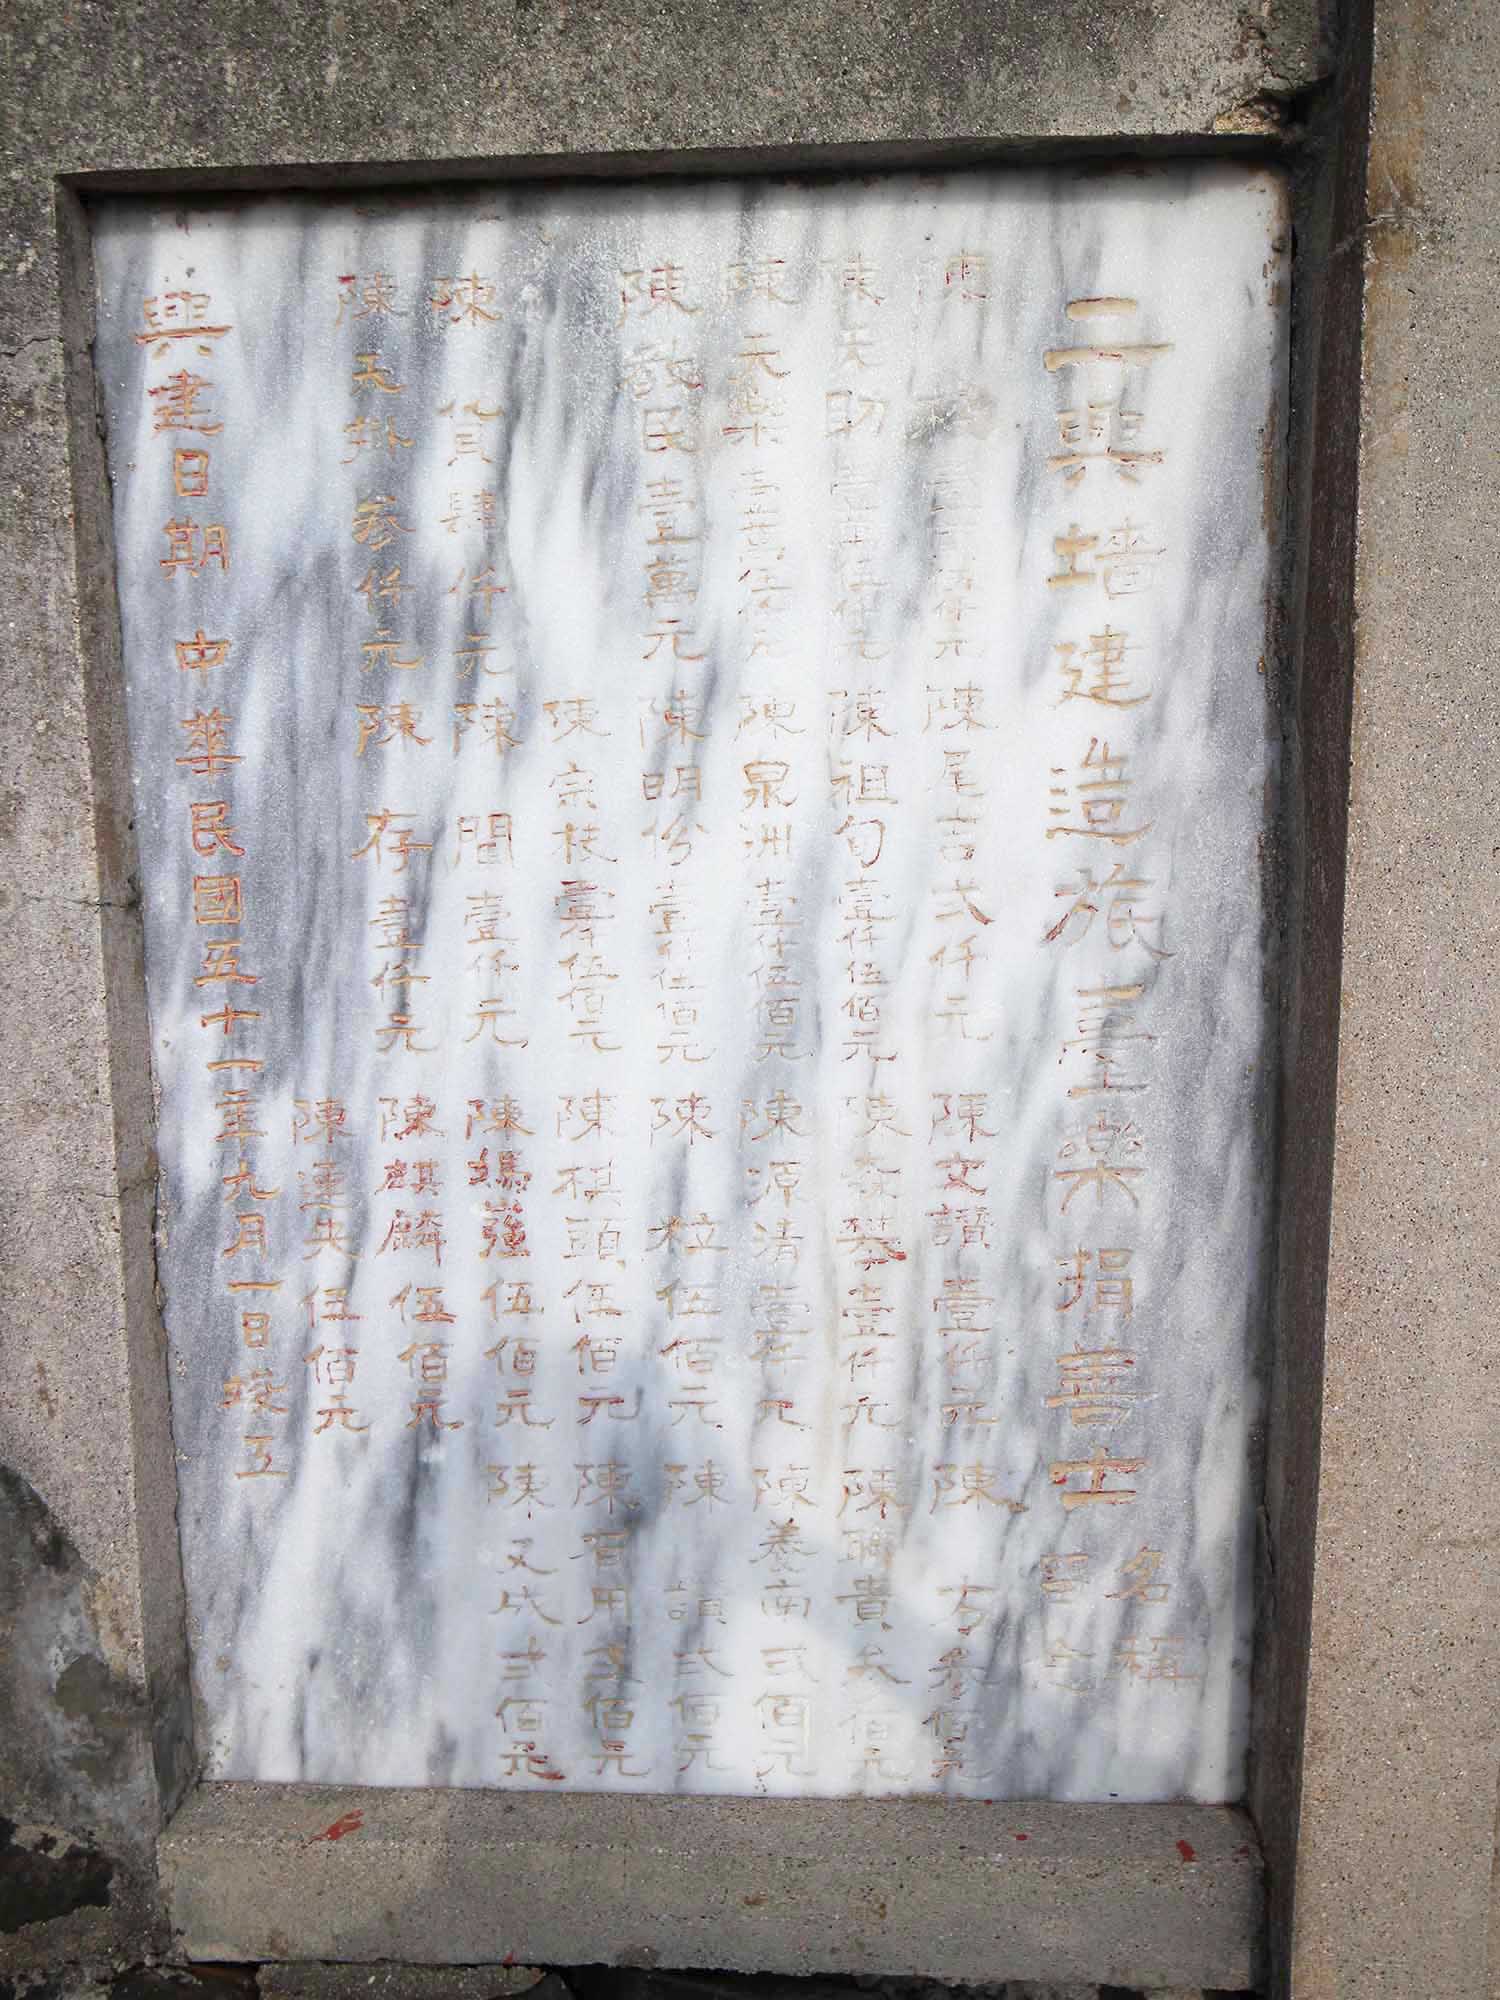 二興墻建造旅臺樂捐善士名稱
陳尾吉弍仟元
陳文讚壹仟元
陳 方參佰元
陳天助壹萬伍仟元
陳祖旬壹仟伍佰元
陳森琴壹仟元
陳聯貴 佰元
陳天樂壹萬伍仟元
陳泉洲壹仟伍佰元
陳源清壹仟元
陳養南弍佰元
陳啟民壹萬元
陳明份壹仟伍佰元
陳 粒伍佰元
陳 讚弍佰元
陳宗枝壹仟伍佰元
陳棋頭伍佰元
陳有用 佰元
陳 貨肆仟元
陳 間壹仟元
陳 伍佰元
陳又成弍佰元
陳天掛參仟元
陳 存壹仟元
陳麒麟伍佰元
陳連央伍佰元
興建日期 中華民國五十一年九月一日竣工